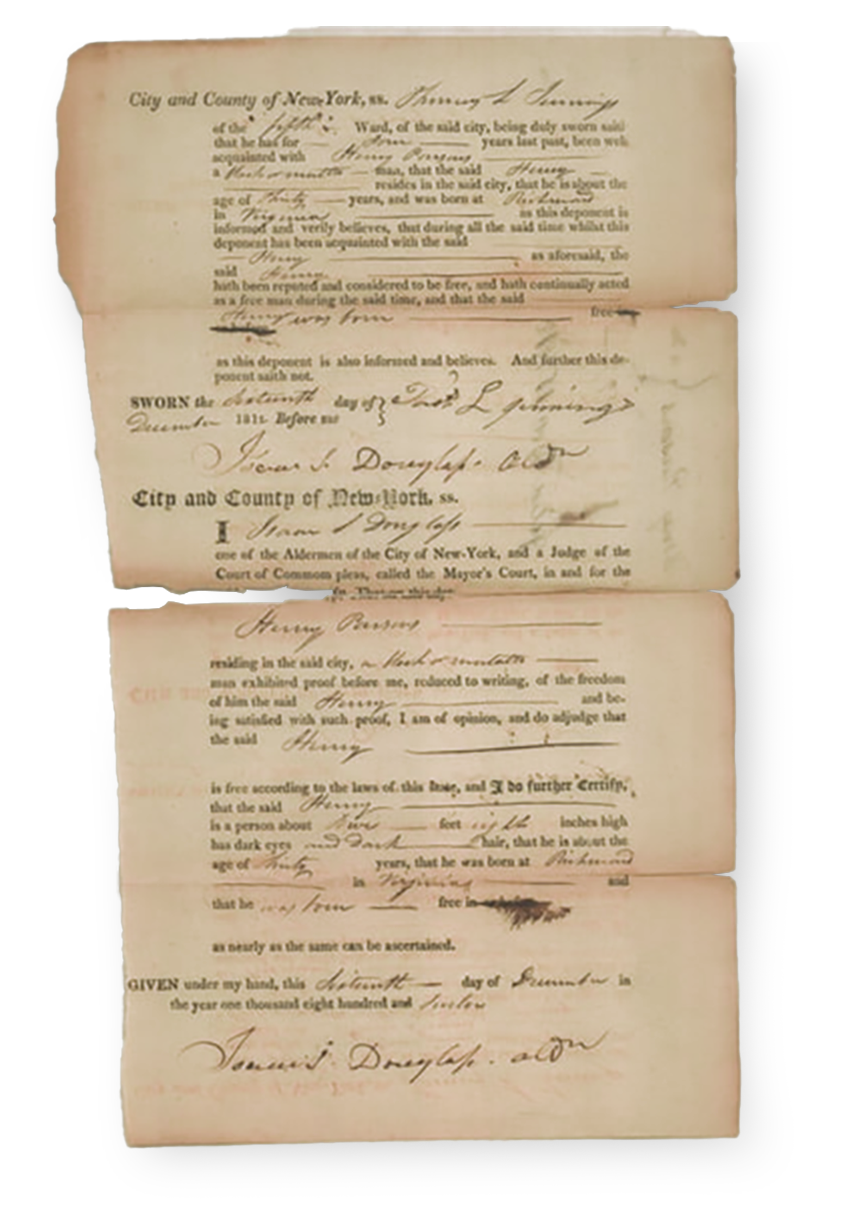 City and County of New-York, ss. Thomas L Jennings
of the fifth Ward, of the said city, being duly sworn saith
that he has for four years last past, been well
acquainted with Henry Parsons
a black or mulatto man, that the said Henry
resides in the said city, that he is about the
age of thirty years, and was born at Richmond
in Virginia as this deponent is
informed and verily believes, that during all the said time whilst this
deponent has been acquainted with the said
Henry as aforesaid, the
said Henry
hath been reputed and considered to be free, and hath continually acted
as a free man during the said time, and that the said
Henry was born free
as this deponent is also informed and believes. And further this de-
ponent saith not.
SWORN the sixteenth day of } Thos L Jennings
December 181 Before me
Isaac S. Douglass. Aldn
City and County of New-York, ss.
I Isaac S Douglass
one of the Aldermen of the City of New-York, and a Judge of the
Court of Commom pleas, called the Mayor's Court, in and for the
That on this day
Henry Parsons
residing in the said city, a black or mulatto
man exhibited proof before me, reduced to writing, of the freedom
of him the said Henry and be-
ing satisfied with such proof, I am of opinion, and do adjudge that
the said Henry
is free according to the laws of this State, and I do further Certify,
that the said Henry
is a person about five feet eight inches high
has dark eyes and dark hair, that he is about the
age of thirty years, that he was born at Richmond
in Virginia and
that he was born free in
as nearly as the same can be ascertained.
GIVEN under my hand, this sixteenth day of December in
the year one thousand eight hundred and
Isaac S. Douglass. aldn